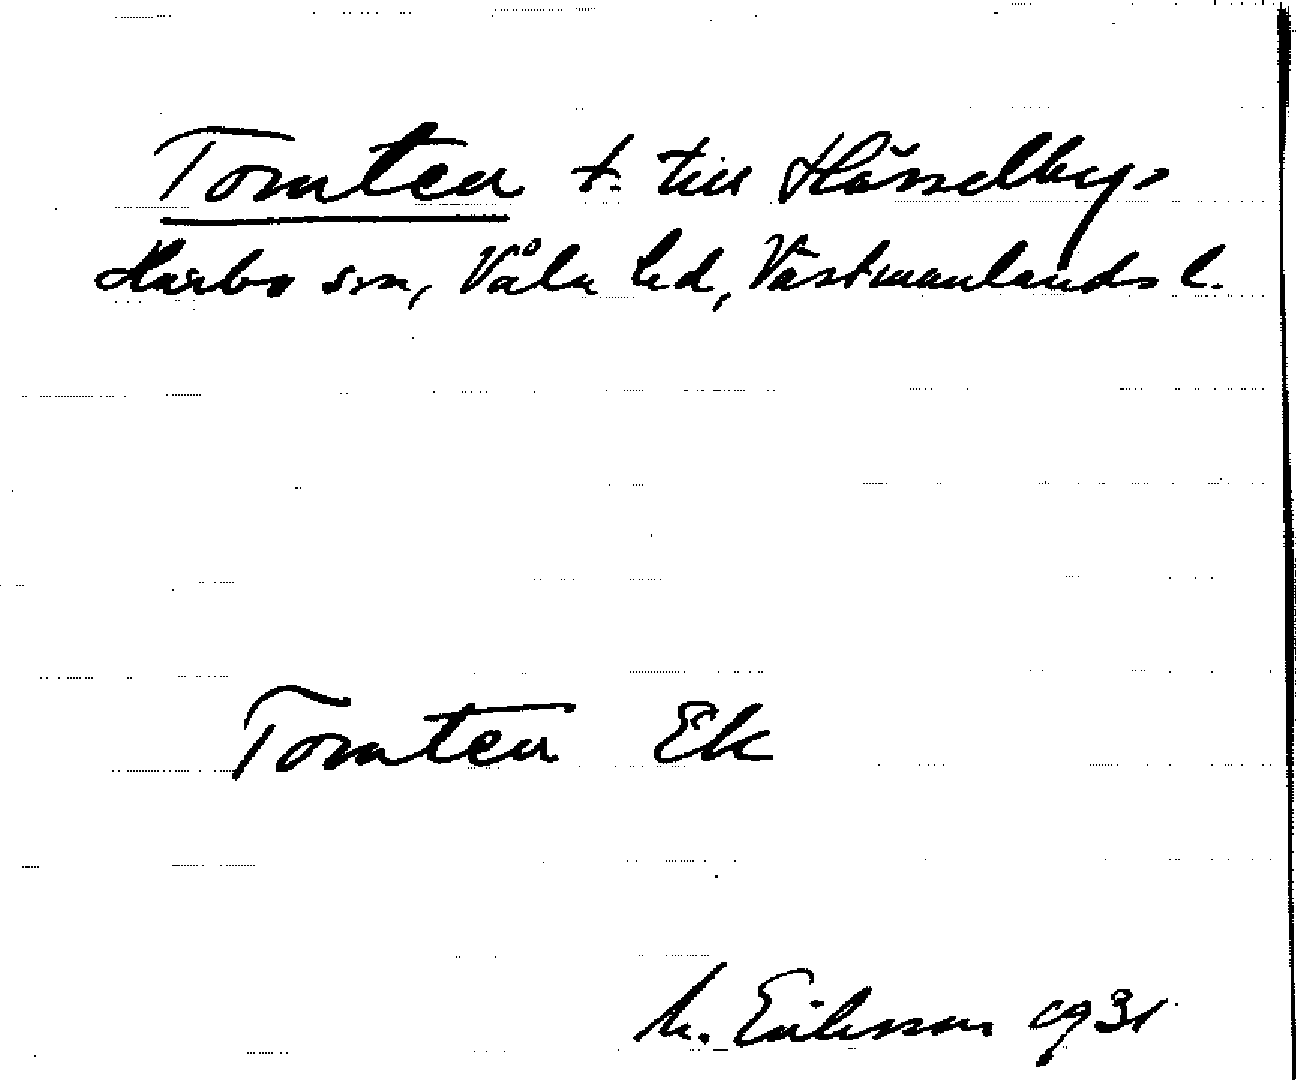 Tomten t. till Hässelby,
Harbo sn, Våla hd, Västmanlands l.
Tomten Ek
M. Eriksson 1931